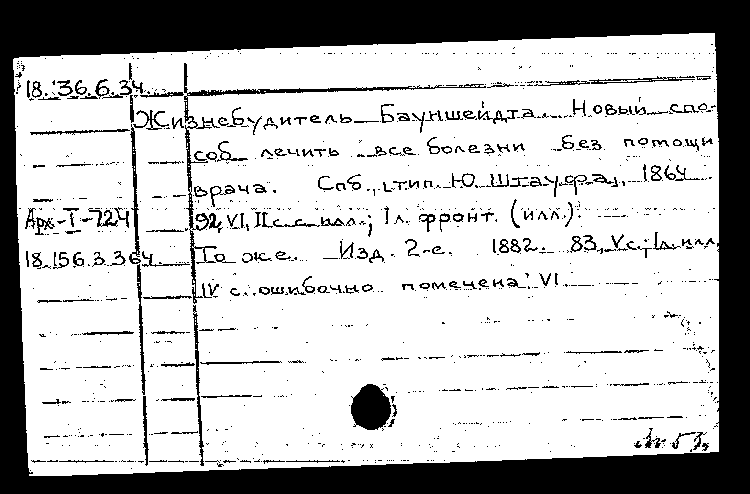 18.136.6.34.
Жизнебудитель Бауншейдта. Новый спо-
соб лечить все болезни без помощи
врача. Спб., тип. Ю. Штауфа, 1864
Арх-I-724 92, VI, II с. с илл.; 1 л. фронт. (илл.).
18.156.3.364. То же. Изд. 2-е. 1882. 83, V с.; 1 л. илл.
IV с. ошибочно помечена: VI